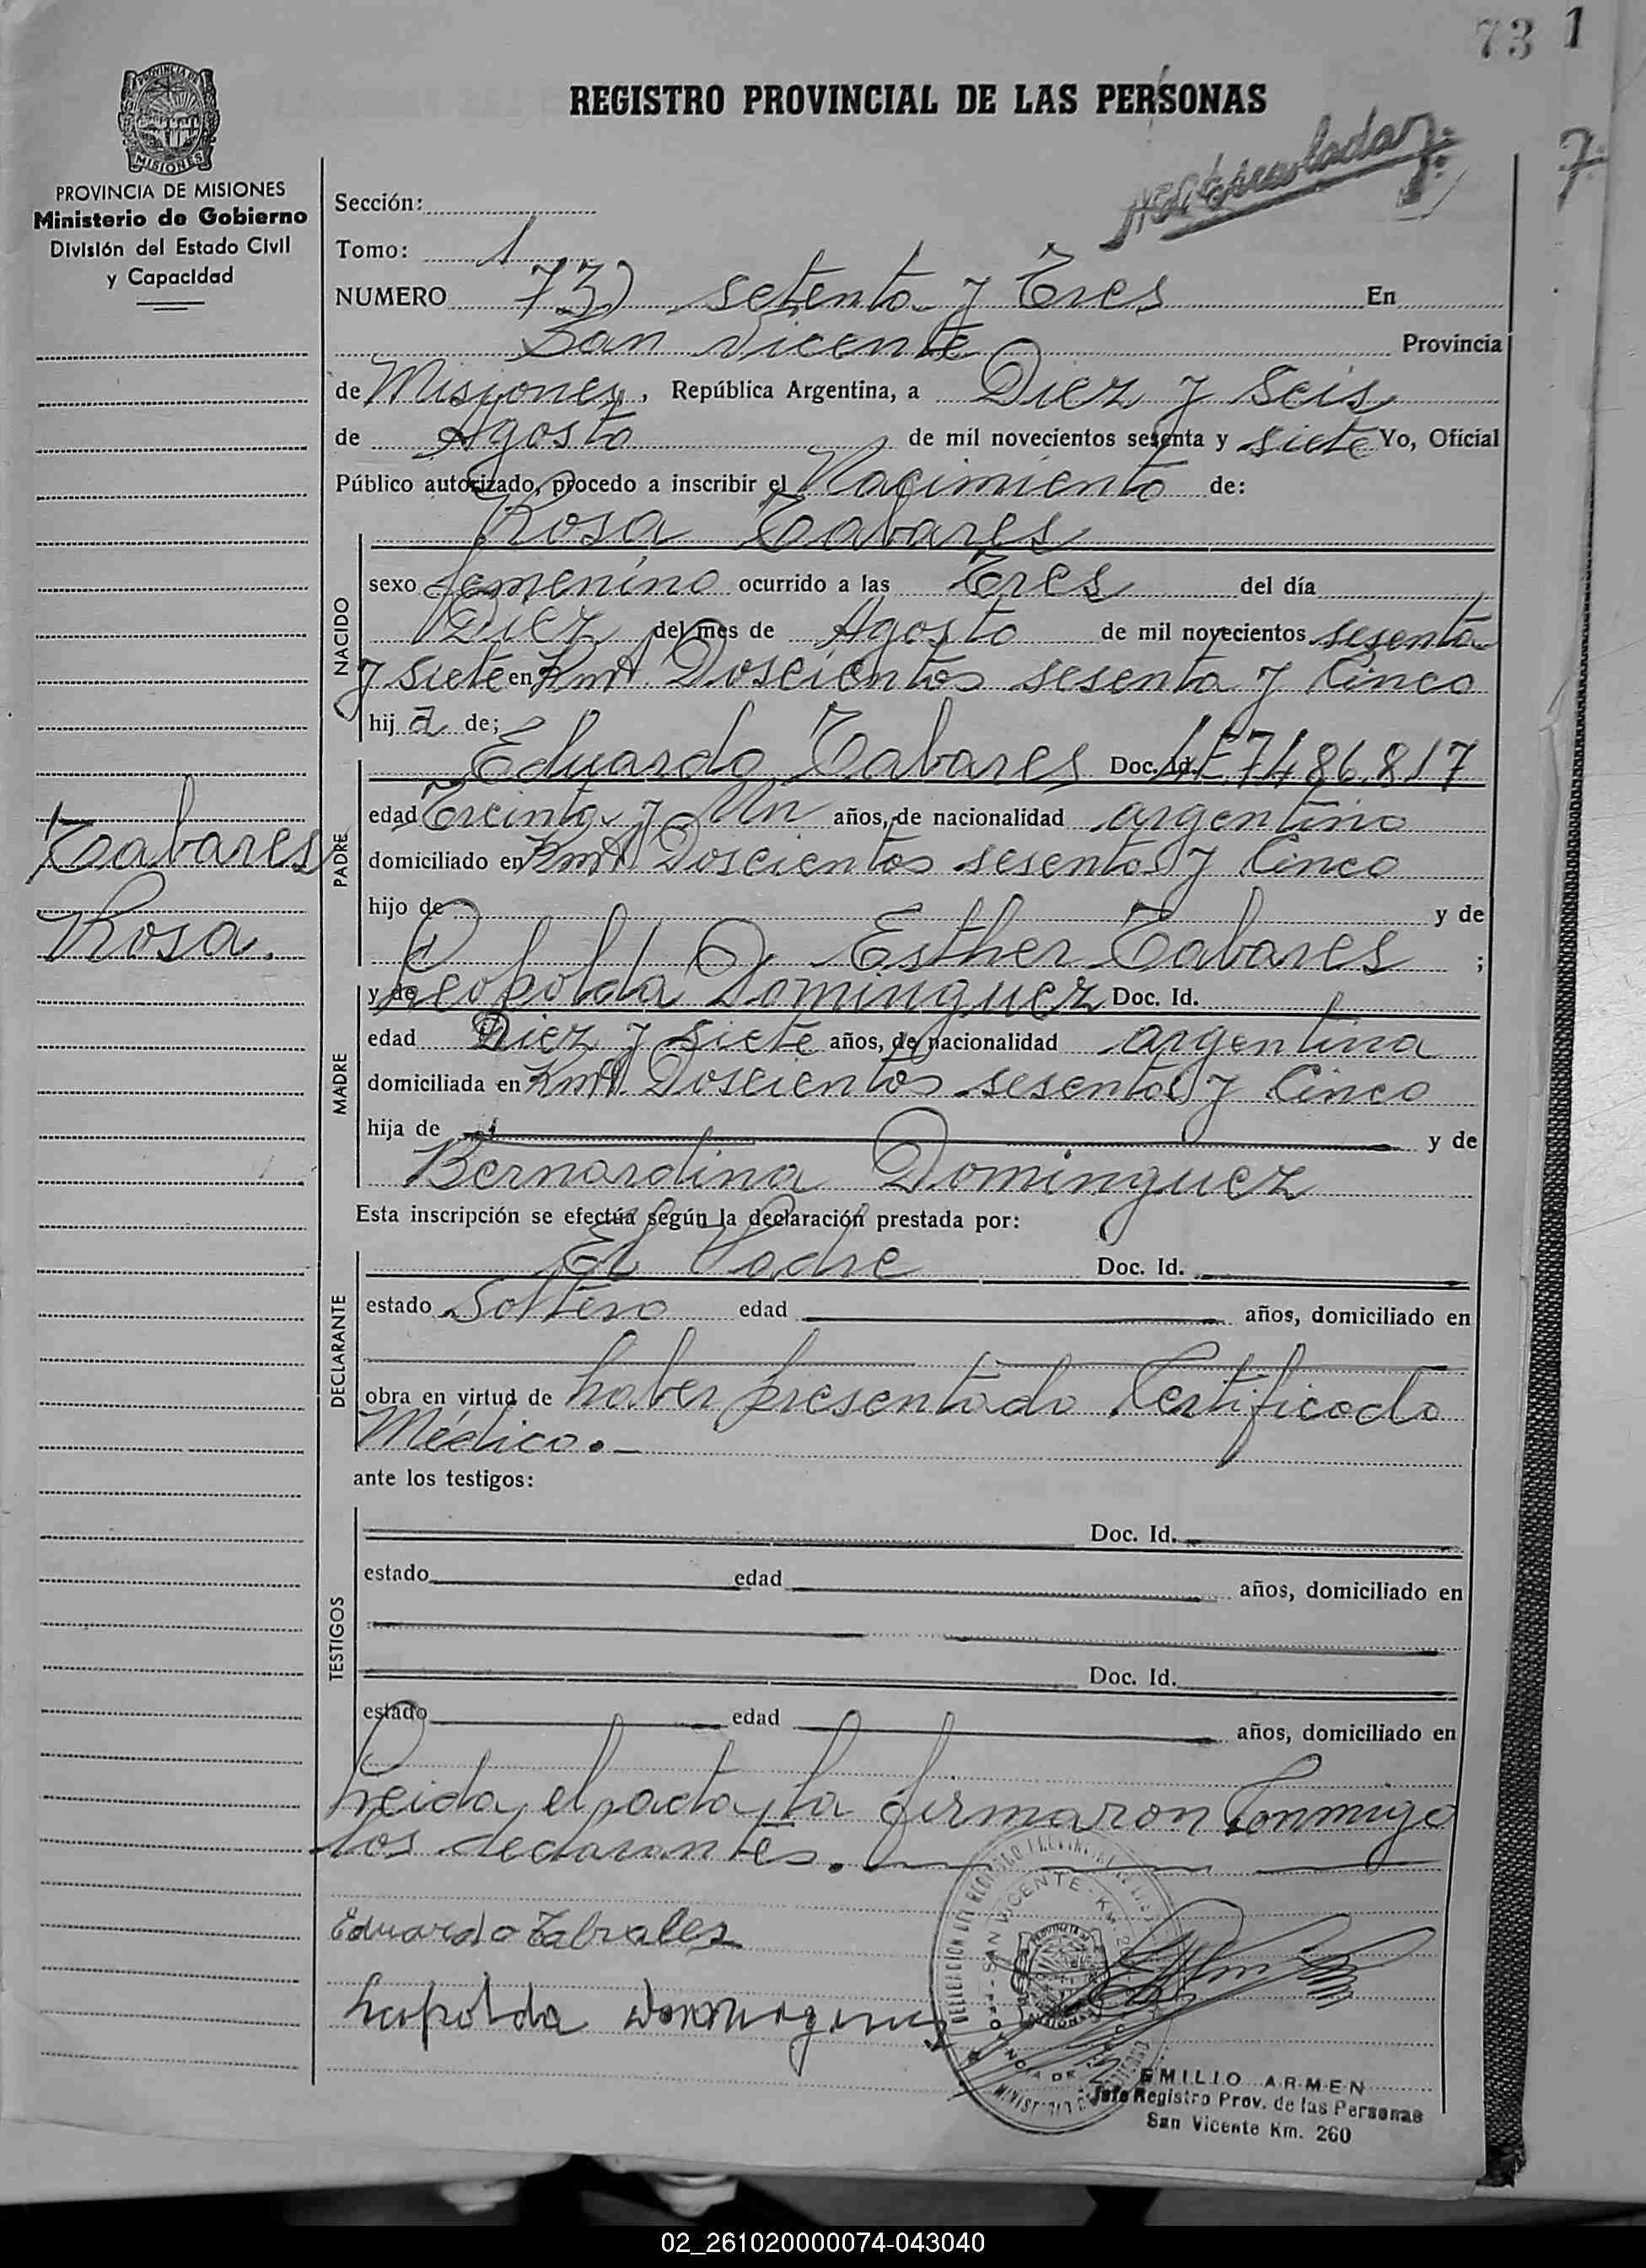 73 1
REGISTRO PROVINCIAL DE LAS PERSONAS
7
PROVINCIA DE MISIONES
MISIONES
PROVINCIA DE MISIONES
Ministerio de Gobierno
División del Estado Civil
y Capacidad
Sección:
Tomo: 1
NUMERO 73) setenta y Tres En
San Vicente Provincia
de Misiones, República Argentina, a Diez y seis
de Agosto de mil novecientos sesenta y siete Yo, Oficial
Público autorizado, procedo a inscribir el Nacimiento de:
Rosa Tabares
NACIDO
sexo femenino ocurrido a las Tres del día
Diez del mes de Agosto de mil novecientos sesenta
y siete en Km. Doscientos sesenta y Cinco
hij a de;
Eduardo Tabares Doc. Id. LE 7486.817
PADRE
edad Treinta y Un años, de nacionalidad argentino
domiciliado en Km. Doscientos sesenta y Cinco
hijo de y de
Esther Tabares ;
y de Leopolda Dominguez Doc. Id.
MADRE
edad Diez y siete años, de nacionalidad argentina
domiciliada en Km. Doscientos sesenta y Cinco
hija de y de
Bernardina Dominguez
Esta inscripción se efectúa según la declaración prestada por:
El Padre Doc. Id.
DECLARANTE
estado Soltero edad años, domiciliado en
obra en virtud de haber presentado Certificado
Médico.-
ante los testigos:
TESTIGOS
Doc. Id.
estado edad años, domiciliado en
Doc. Id.
estado edad años, domiciliado en
Leida el acta, la firmaron Conmigo
los declarantes.
Tabares
Rosa.
Eduardo Tabrales
Leopolda
SAN VICENTE - KM.
EMILIO ARMEN
Jefe Registro Prov. de las Personas
San Vicente Km. 260
02_261020000074-043040